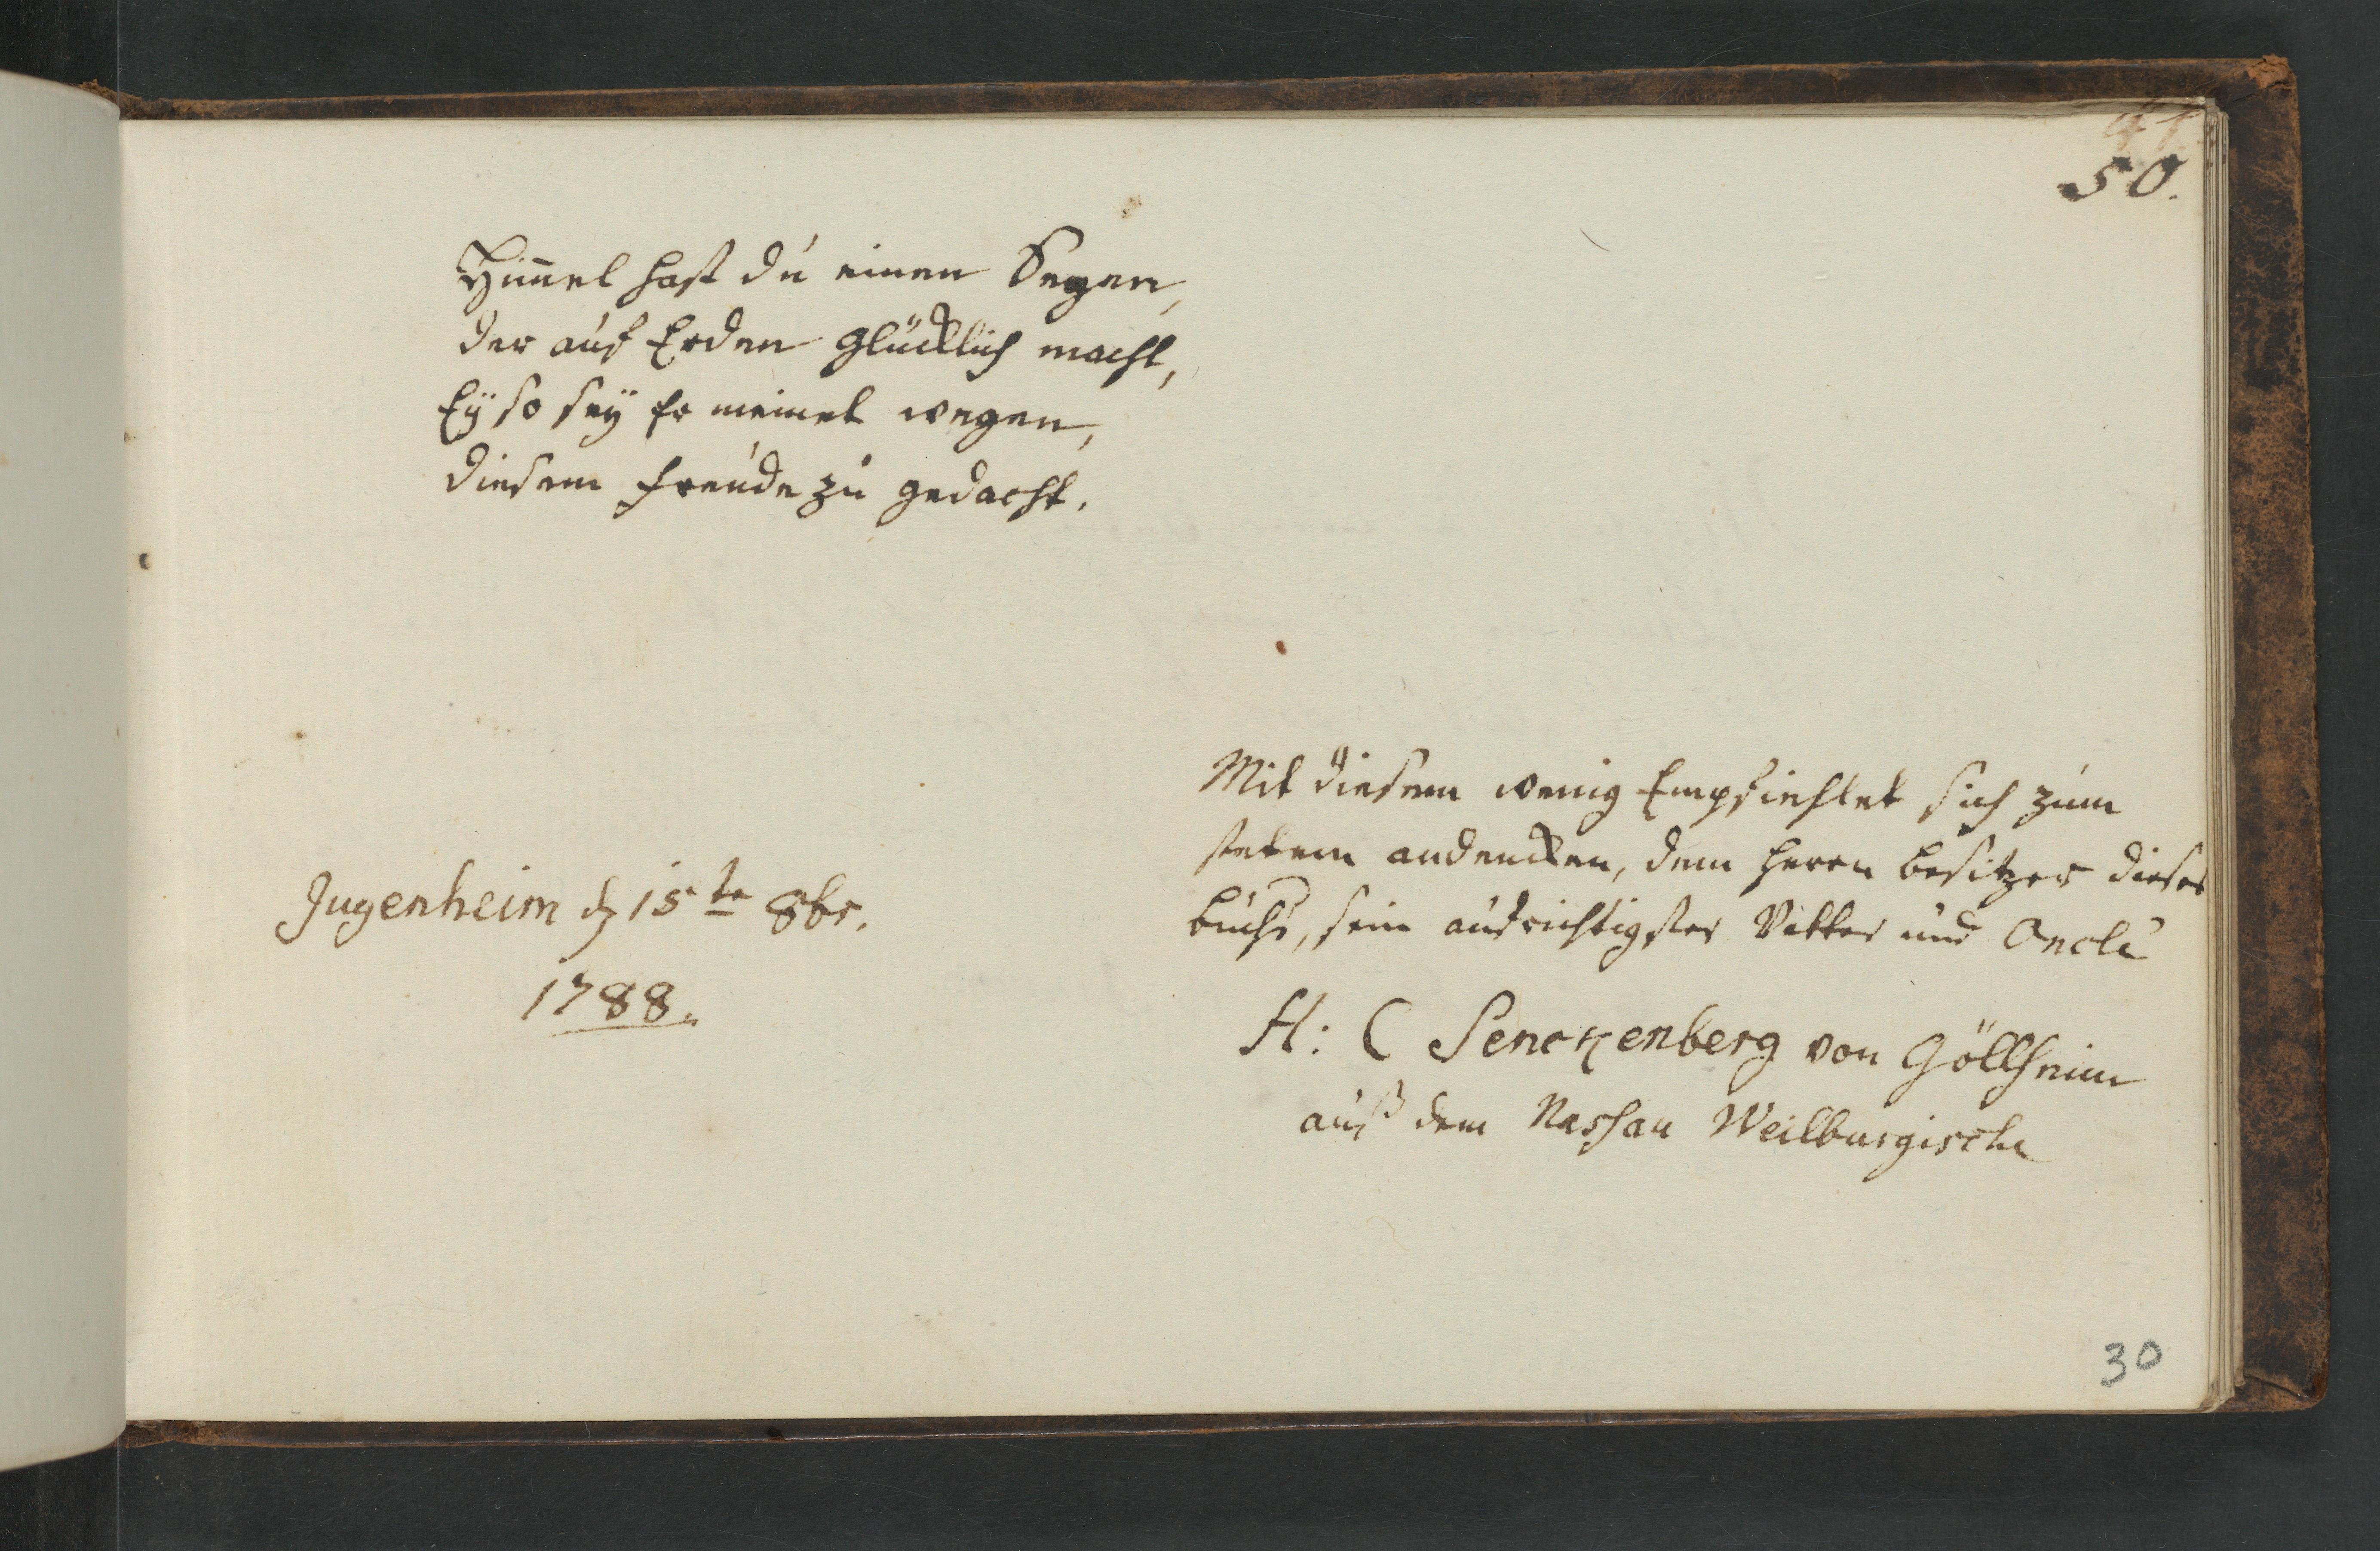 50.
Him̄el hast du einen Segen,
der auf Erden glücklich macht,
Eÿ so seÿ Er meinet wegen,
diesem freunde zu gedacht.
Mit diesem wenig Empfiehlet sich zum
stetem andencken, dem herrn besitzer dieses
buchs, sein aufrichtigster Vetter und Oncle
Jugenheim d 15te 8br.
1788.
H: C Senckenberg von Göllheim
auß dem Nassau Weilburgische
30